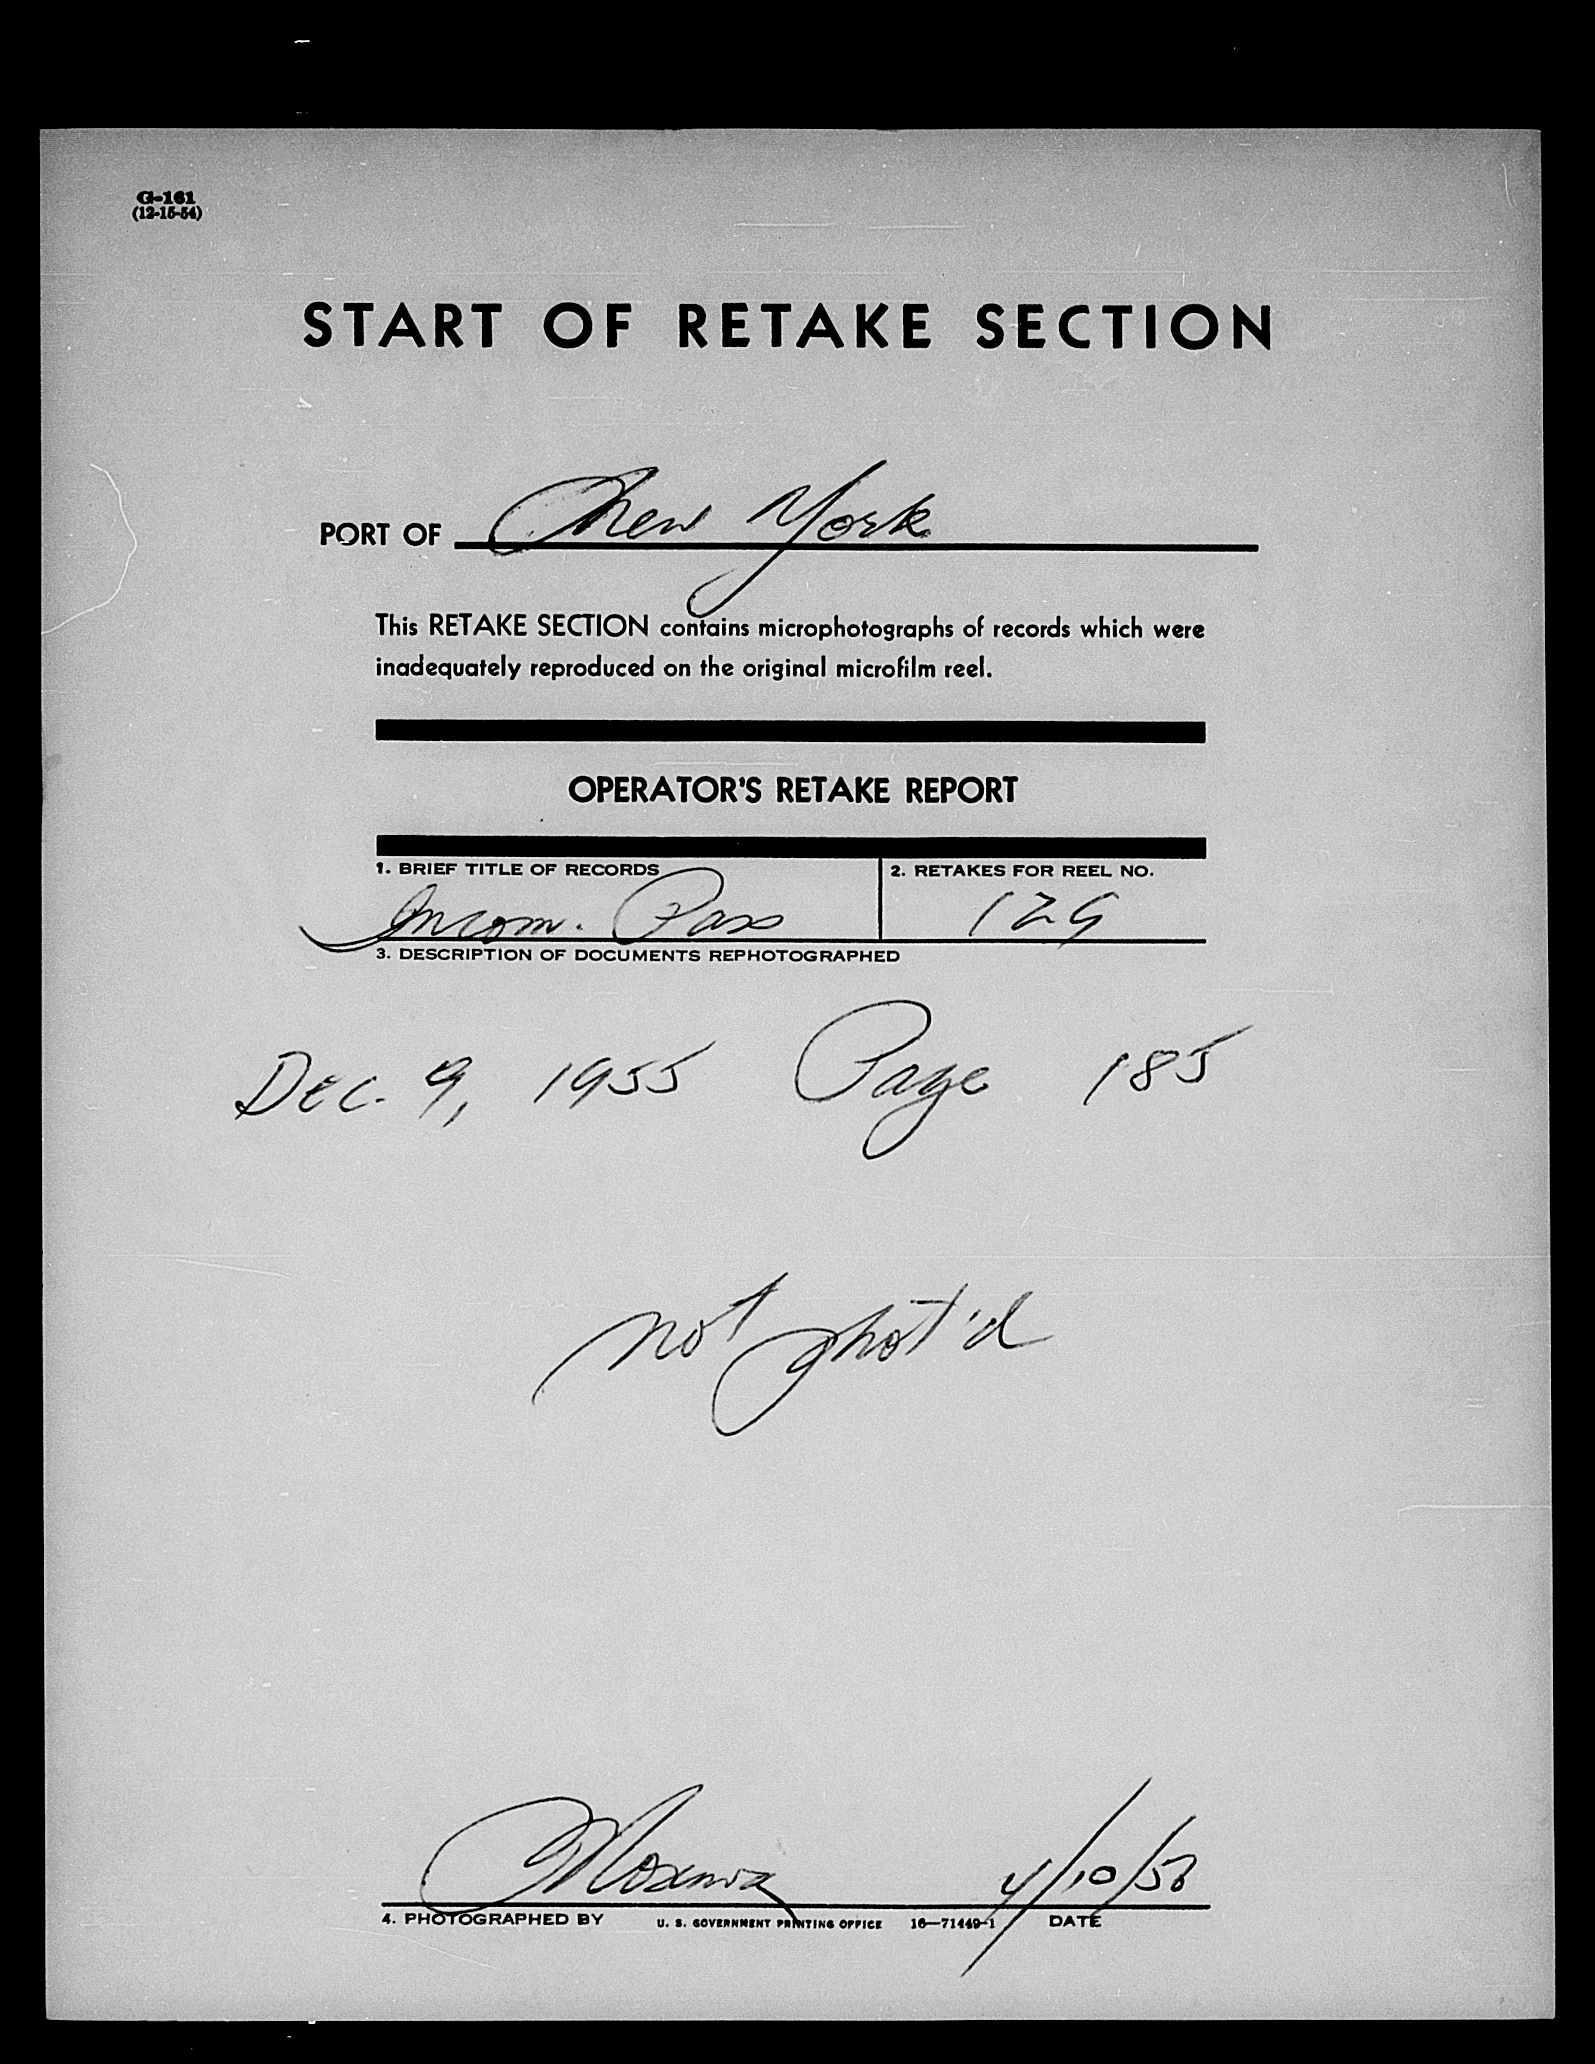 G-161
(12-15-54)
START OF RETAKE SECTION
PORT OF New York
This RETAKE SECTION contains microphotographs of records which were
inadequately reproduced on the original microfilm reel.
OPERATOR'S RETAKE REPORT
1. BRIEF TITLE OF RECORDS 2. RETAKES FOR REEL NO.
Incom. Pass 129
3. DESCRIPTION OF DOCUMENTS REPHOTOGRAPHED
Dec. 9, 1955 Page 185
not phot'd
4/10/56
4. PHOTOGRAPHED BY U. S. GOVERNMENT PRINTING OFFICE 16—71449-1 DATE